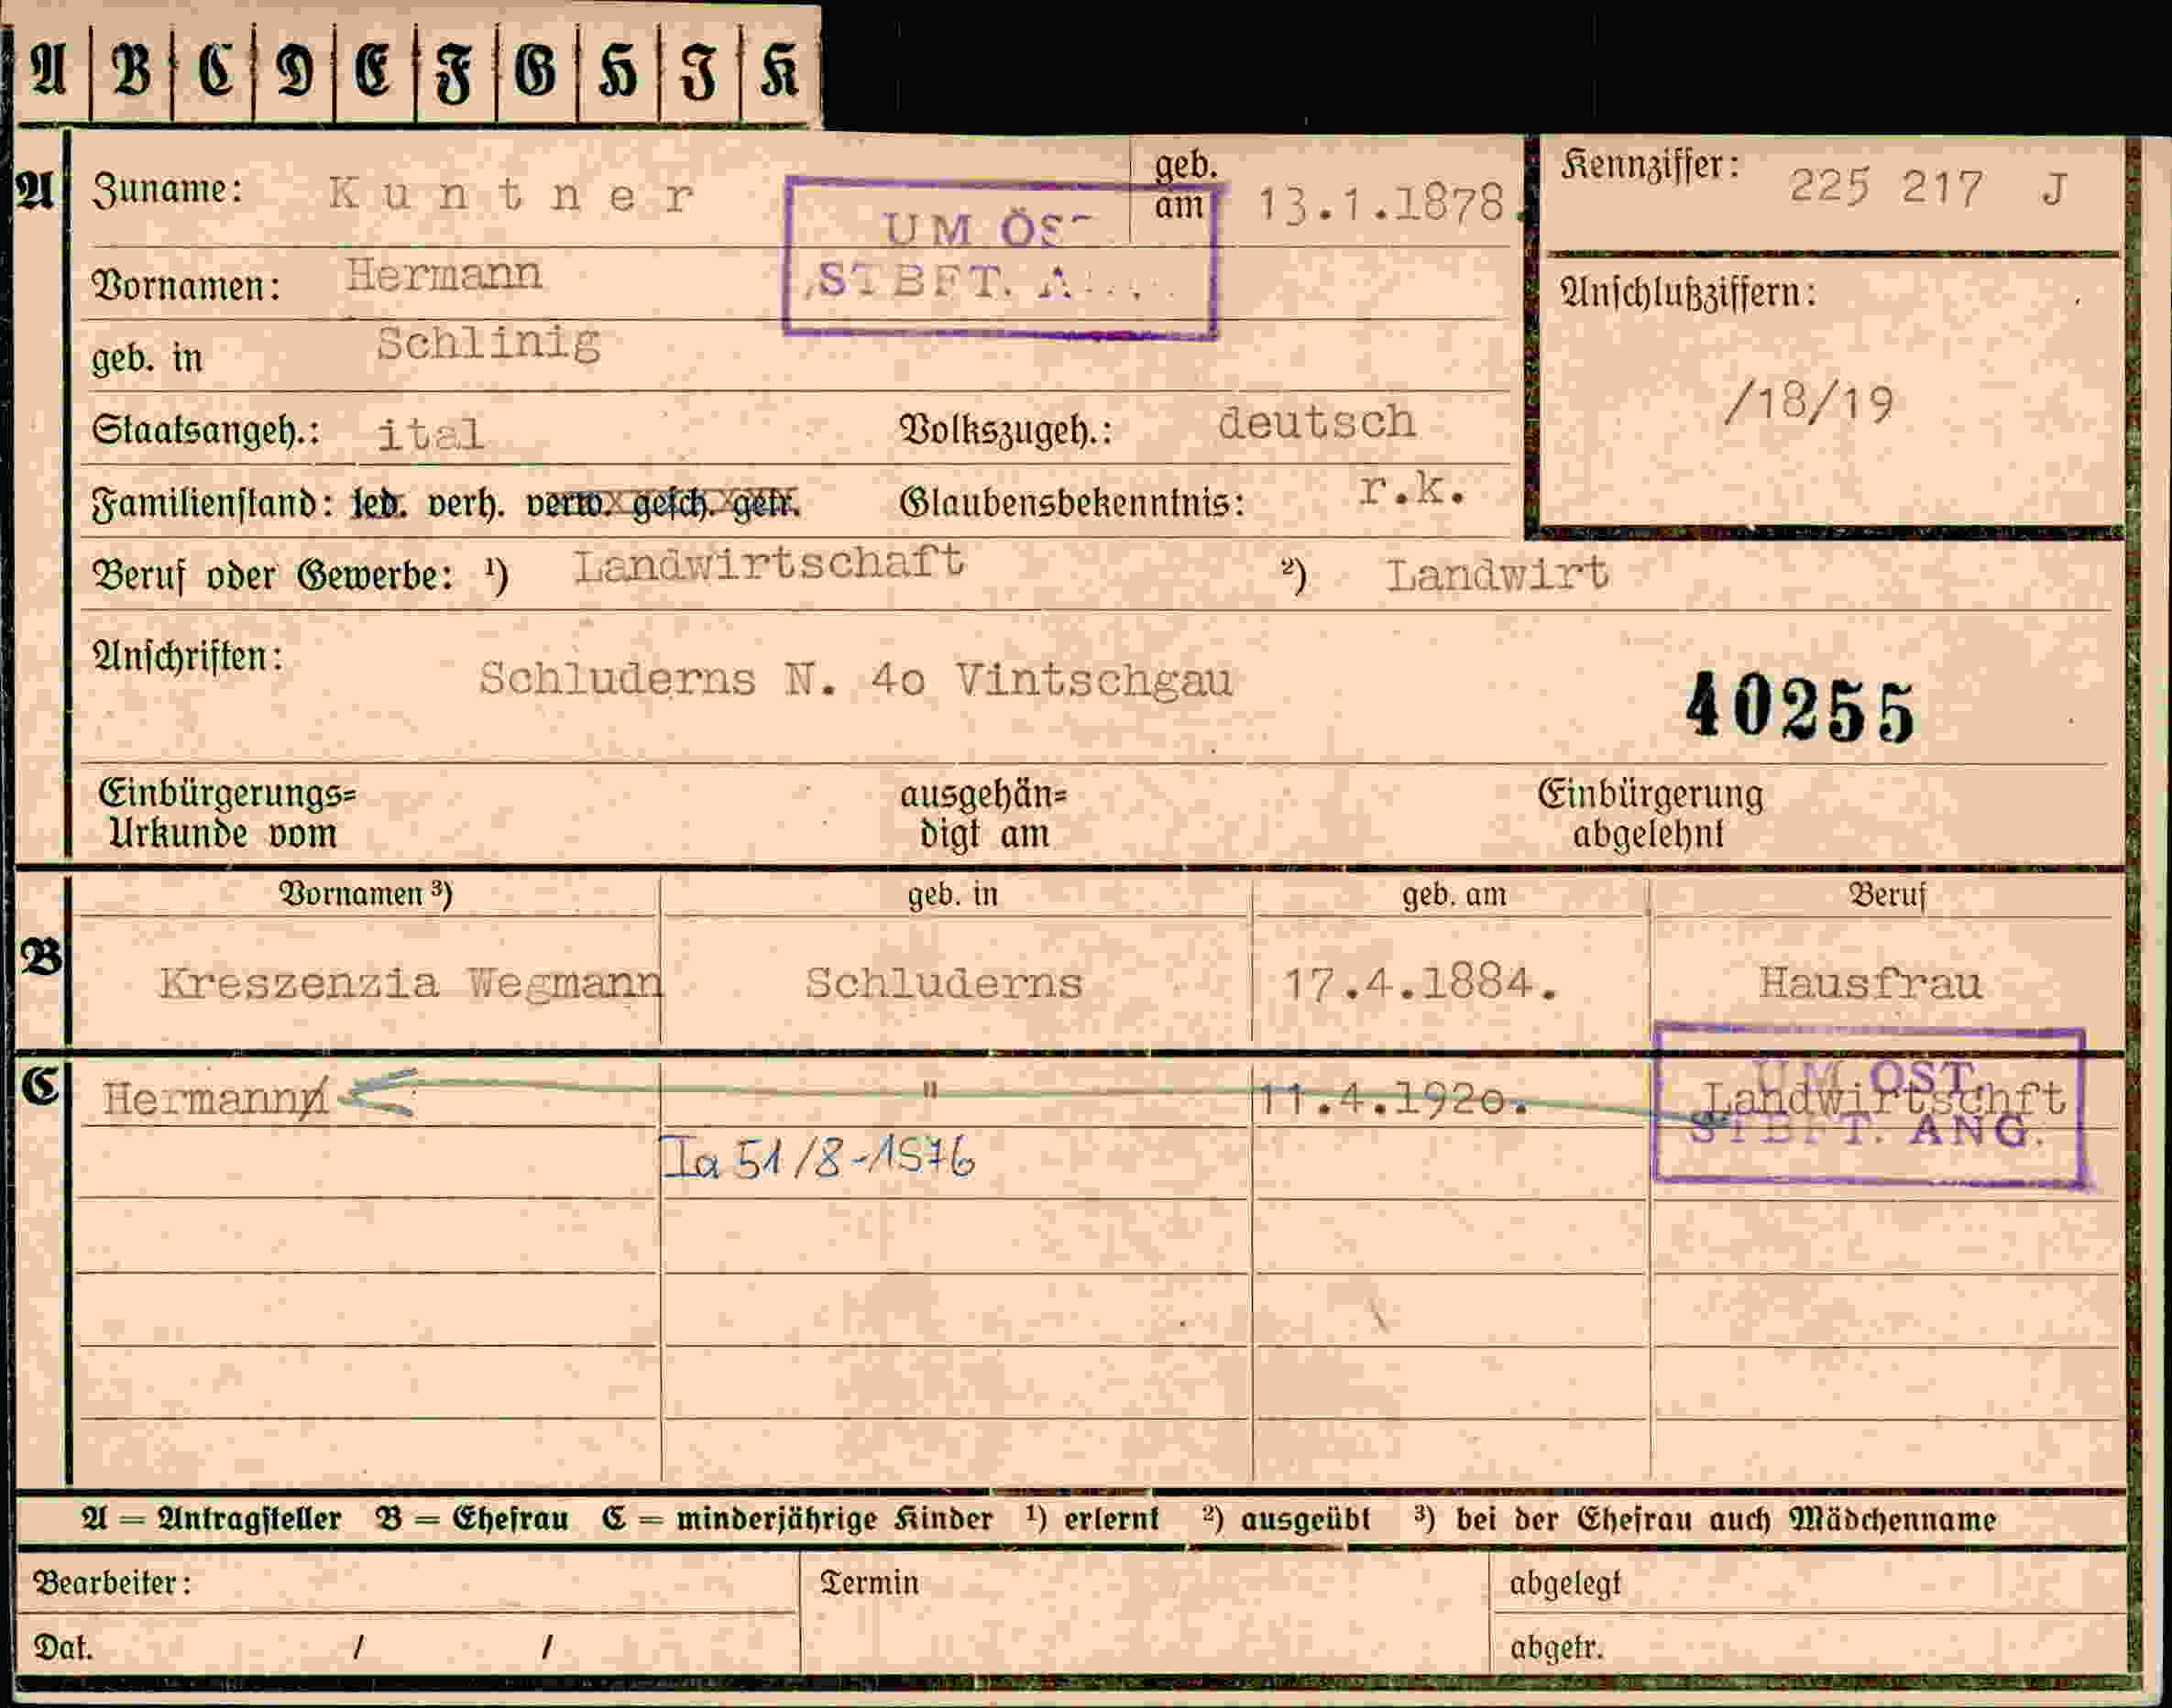 A B C D E F G H J K
A Zuname: Kuntner geb. am 13.1.1878. Kennziffer: 225 217 J
UM ÖS
Vornamen: Hermann
STBFT. A
Anschlußziffern:
geb. in Schlinig
/18/19
Staatsangeh.: ital Volkszugeh.: deutsch
Familienstand: led. verh. verw. gesch. getr. Glaubensbekenntnis: r.k.
Beruf oder Gewerbe: ¹) Landwirtschaft ²) Landwirt
Anschriften: Schluderns N. 4o Vintschgau
40255
Einbürgerungs= ausgehän= Einbürgerung
Urkunde vom digt am abgelehnt
Vornamen ³) geb. in geb. am Beruf
B Kreszenzia Wegmann Schluderns 17.4.1884. Hausfrau
C Hermann " 11.4.192o. Landwirtschft
UM ÖST.
STBFT. ANG.
Ia 51/8-1576
A = Antragsteller B = Ehefrau C = minderjährige Kinder ¹) erlernt ²) ausgeübt ³) bei der Ehefrau auch Mädchenname
Bearbeiter: Termin abgelegt
Dat. / / abgetr.